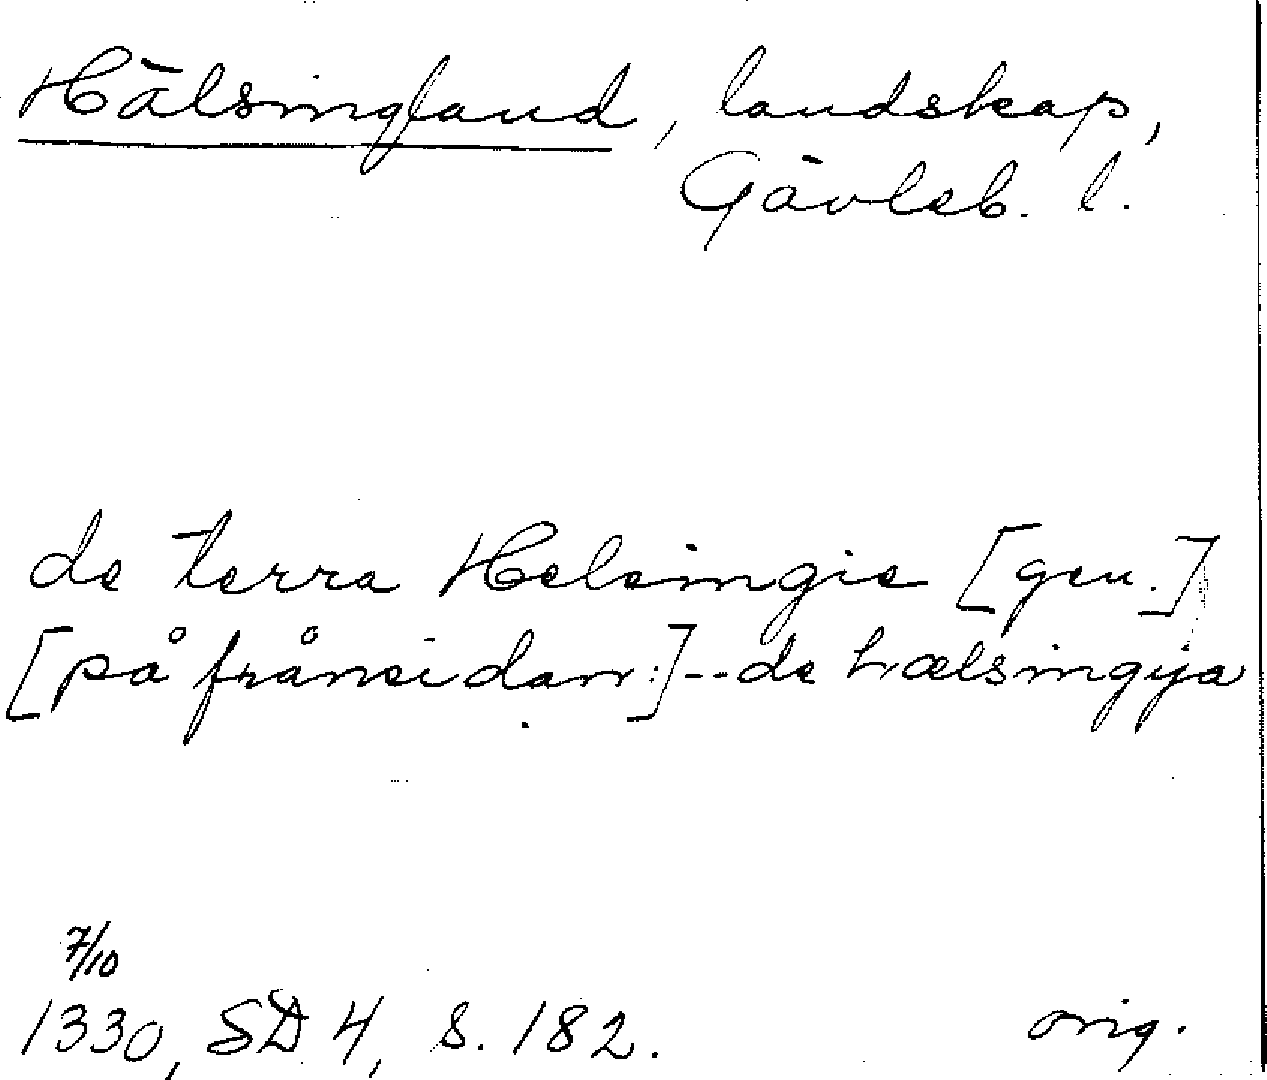 Hälsingland, landskap,
Gävleb. l.
de terra Helsingie [gen.]
[på frånsidan:]--de hælsingija
7/10
1330, SD 4, s. 182.
orig.